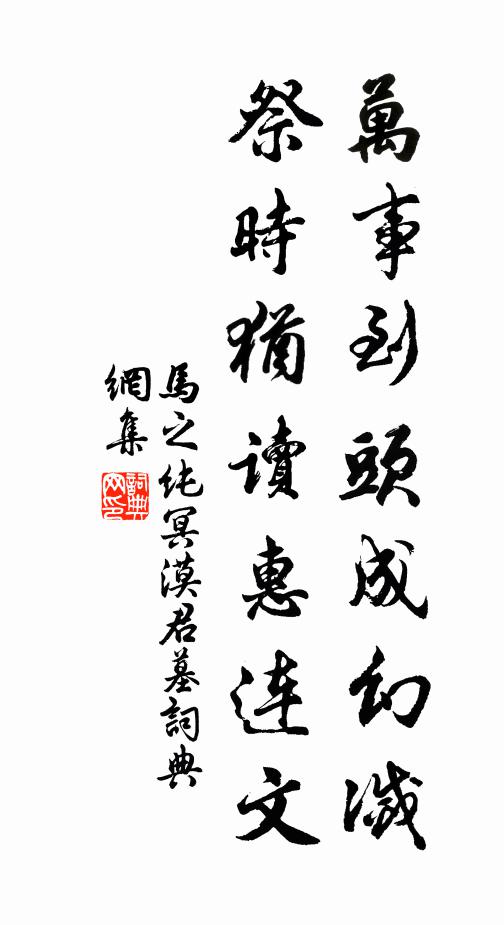 萬事到頭成幻滅
祭時猶讀惠連文
馬之純冥漠君墓詞典
網集
詞典
网印